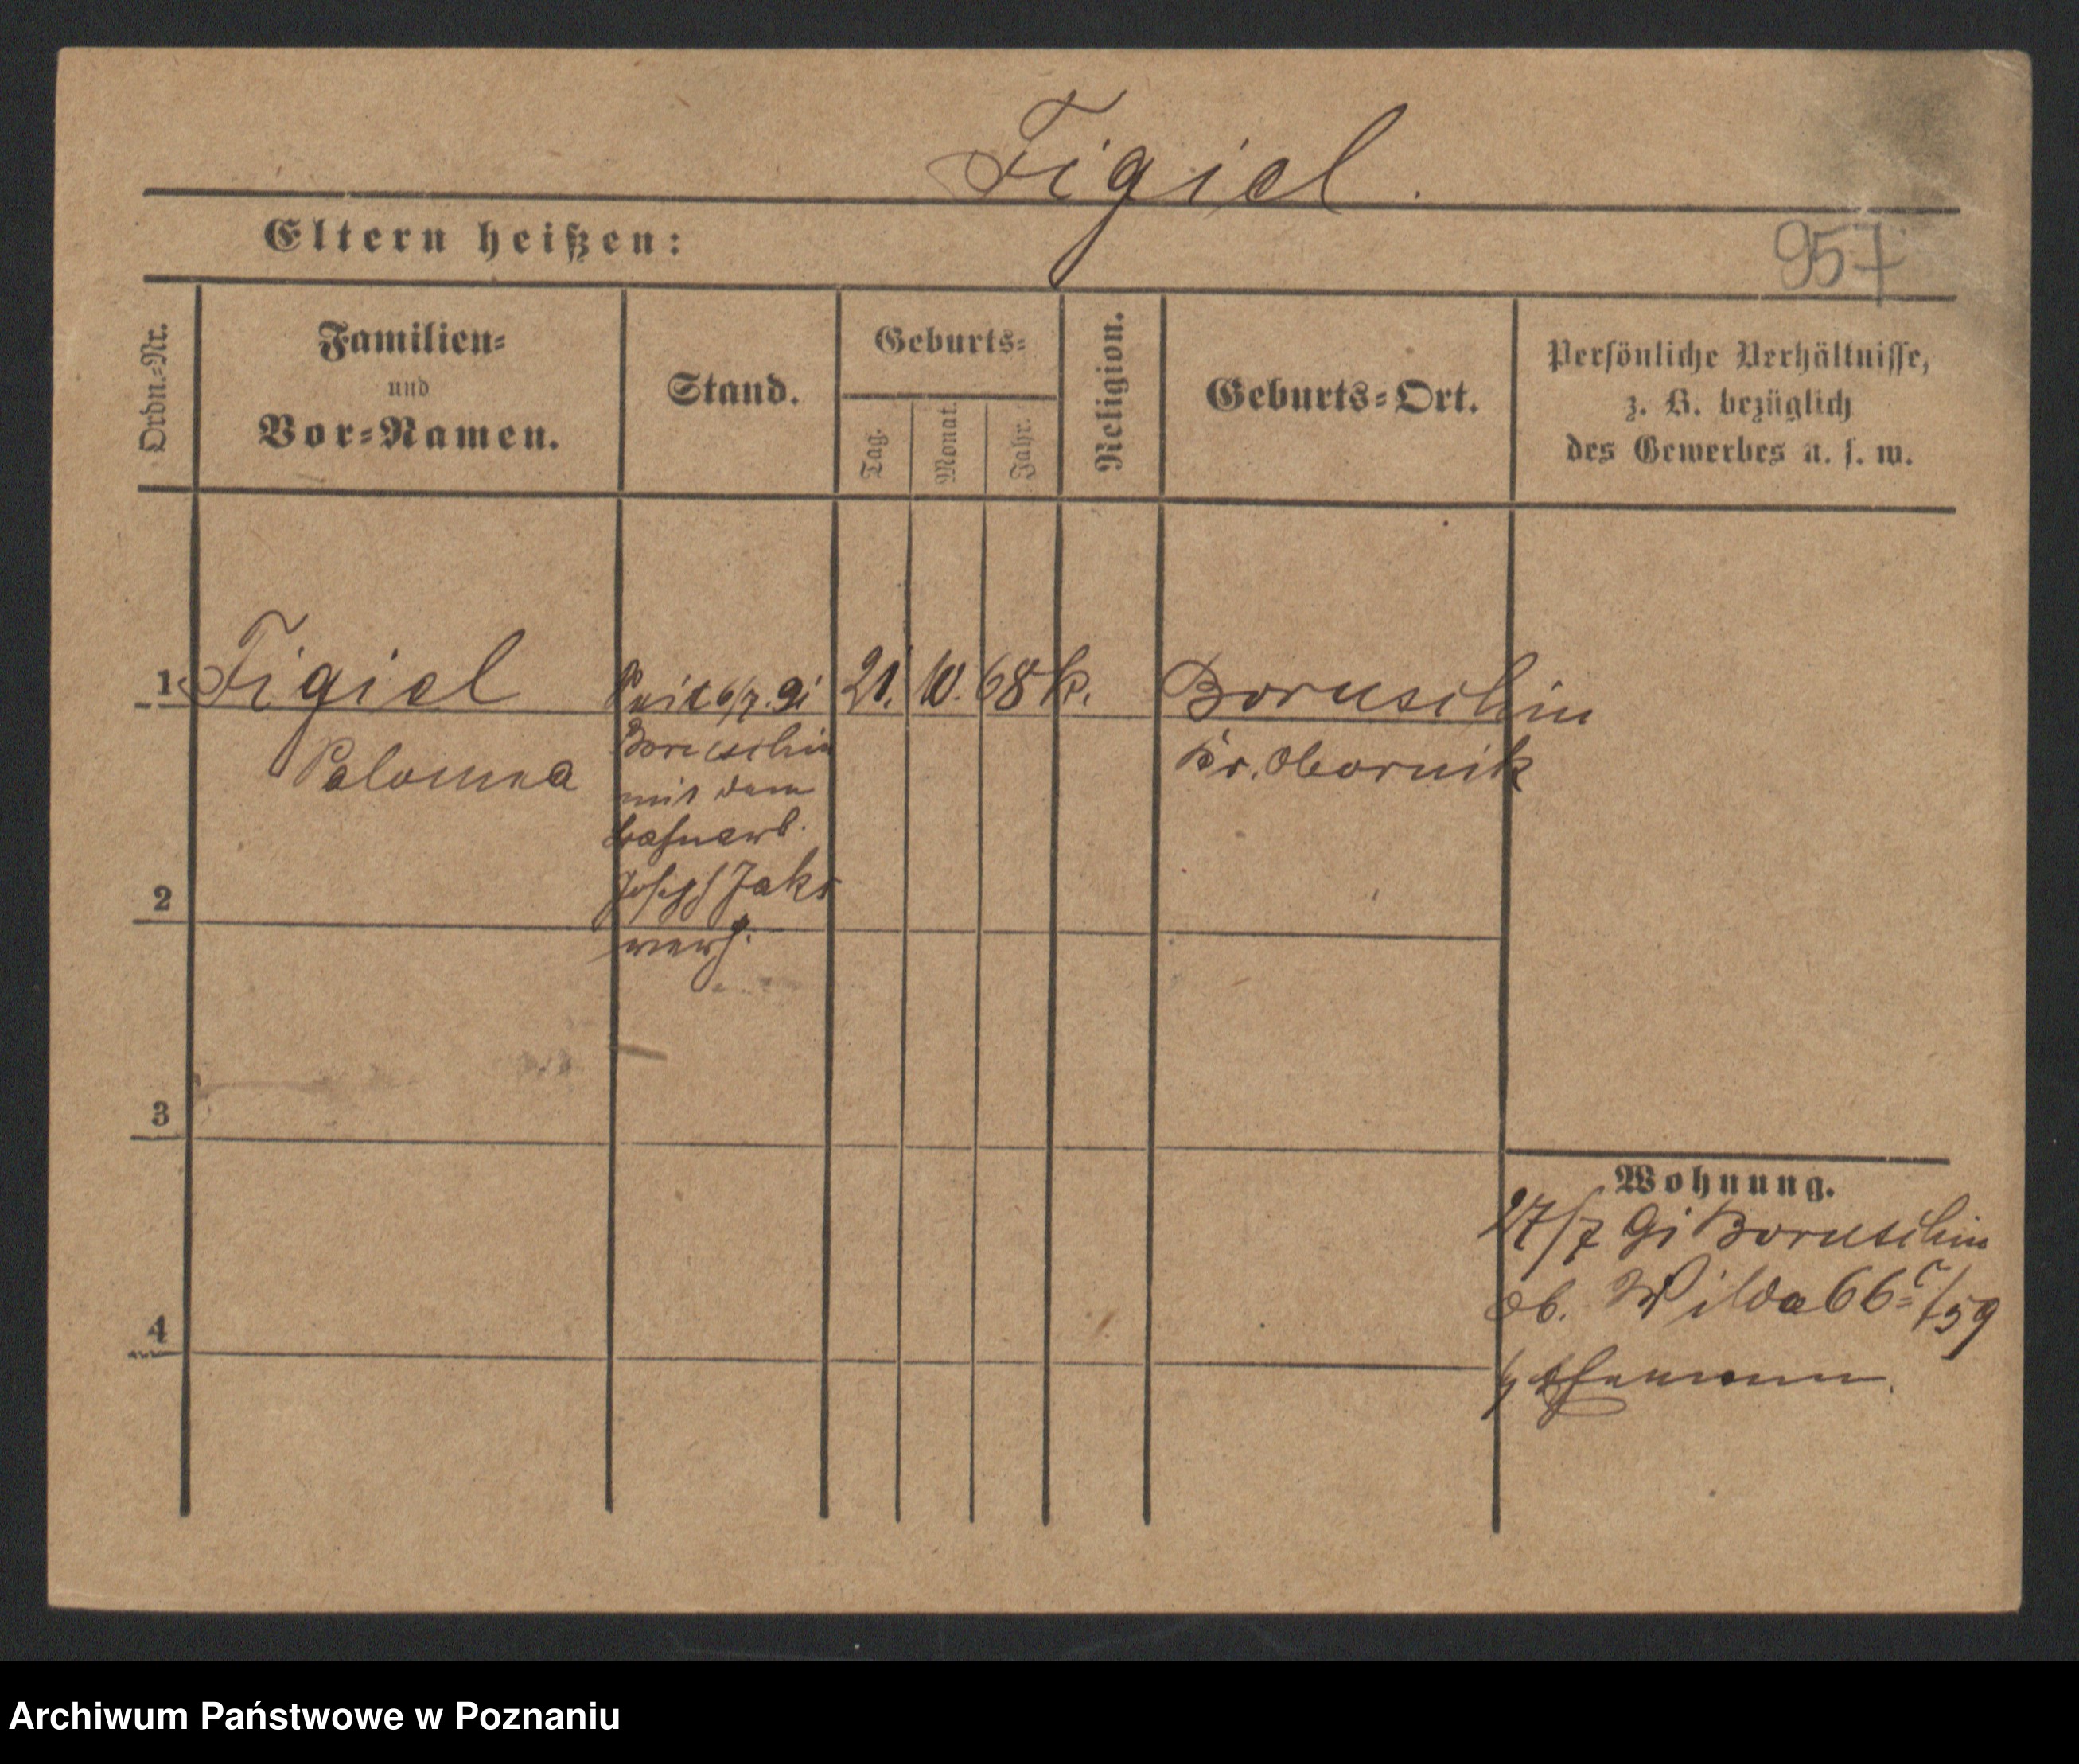 Figiel.
Eltern heißen:
957
Ordn.-Nr.
Familien-
und
Vor-Namen.
Stand.
Geburts-
Tag.
Monat.
Jahr.
Religion.
Geburts-Ort.
Persönliche Verhältnisse,
z. B. bezüglich
des Gewerbes u. s. w.
1 Figiel
Paloma
Seit 6/7. 91
Boruschin
mit dem
Bahnarb.
Joseph Jaks
verh.
21. 10. 68 k.
Boruschin
Kr. Obornik
2
3
4
Wohnung.
27/7 91 Boruschin
Ob. Wilda 66 c/59
Ehemann.
Archiwum Państwowe w Poznaniu